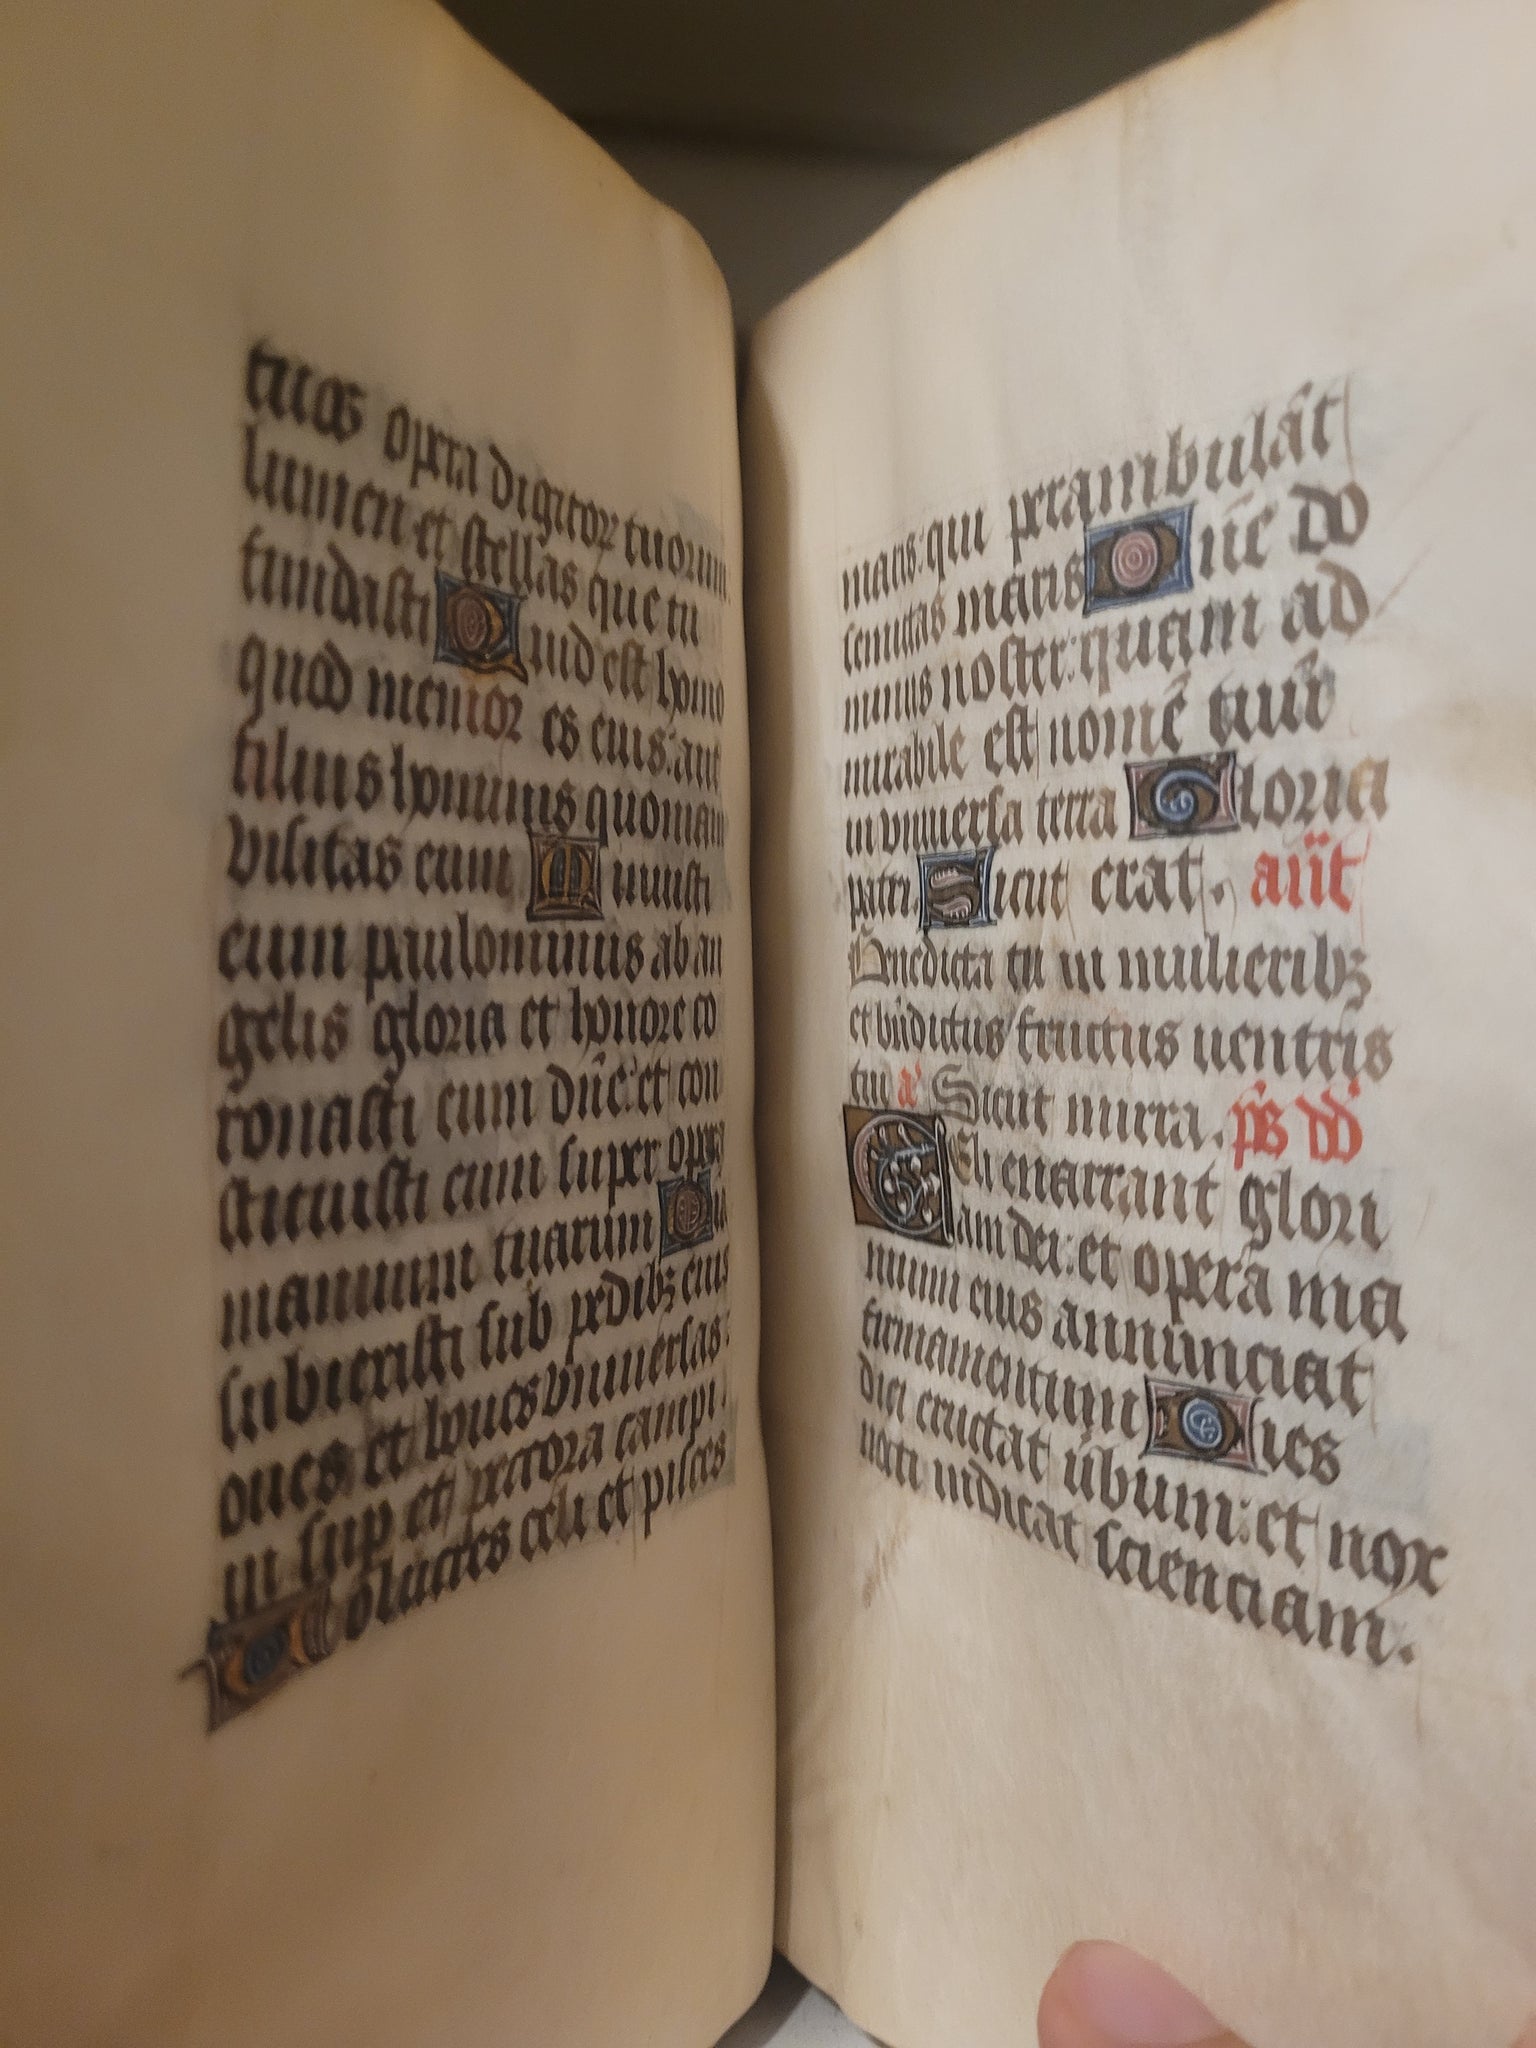 tuos opera digitoꝝ tuorum
lunien et stellas que tu
fundasti Quid est homo
quod memor es eius: aut
filius hominis quoniam
visitas eum Minuisti
eum paulominus ab an
gelis gloria et honore co
ronasti eum dñe: et con
stituisti eum super opera
manuum tuarum O
subiecisti sub pedibꝫ eius
oues et boues vniuersas:
in sup et pectora campi.
Uolucres celi et pisces
maris: qui perambulãt
semitas maris Dñe do
minus noster: quam ad
mirabile est nomẽ tuũ
in vniuersa terra Gloria
patri. Sicut erat. añt
Benedicta tu in mulieribꝫ
et bñdictus fructus uentris
tui a' Sicut mirra. p̃s dd
Celi enarrant glori
am dei: et opera ma
nuum eius annunciat
firmamentum Dies
diei eructat ũbum: et nox
nocti indicat scienciam.